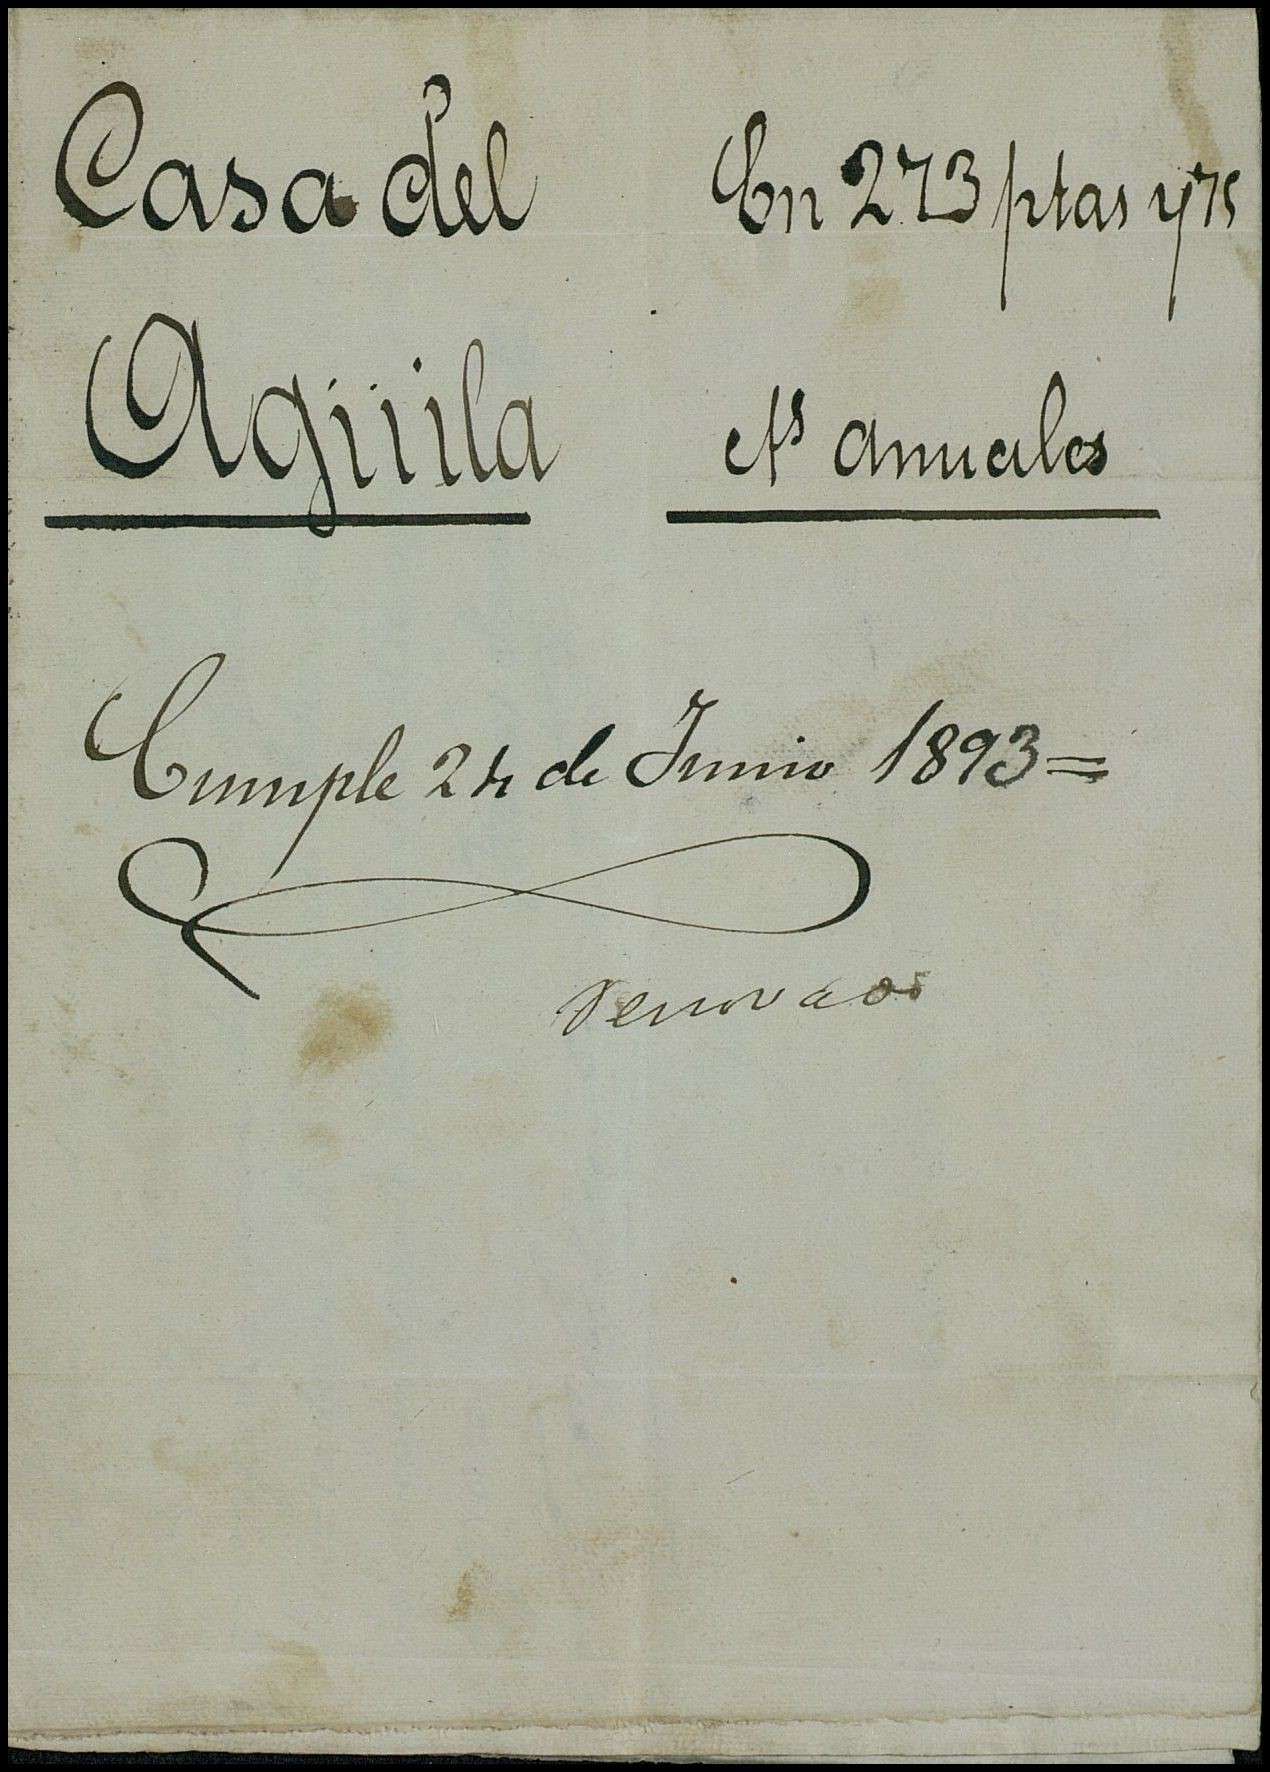 Casa del
Agüila
En 273 ptas y 75
cts anuales
Cumple 24 de Junio 1893=
Renovado